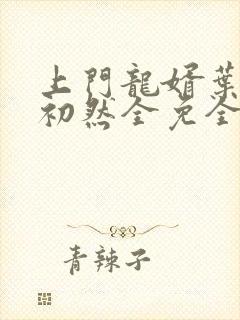 上門龍婿葉
初然全免全
青辣子